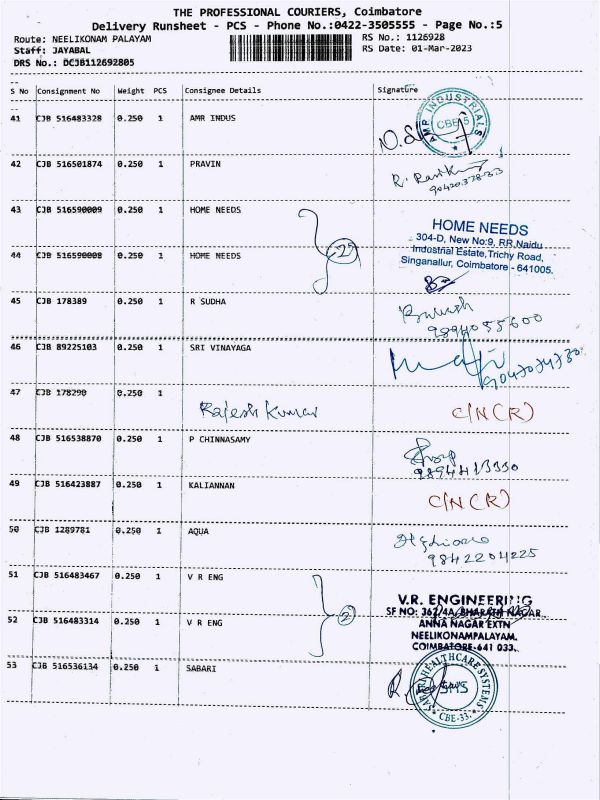 THE PROFESSIONAL COURIERS, Coimbatore
Delivery Runsheet - PCS - Phone No.:0422-3505555 - Page No.:5
Route: NEELIKONAM PALAYAM
RS No.: 1126928
Staff: JAYABAL
RS Date: 01-Mar-2023
DRS No.: DCJB112692805
S No Consignment No Weight PCS Consignee Details Signature
41 CJB 516483328 0.250 1 AMR INDUS
AMR INDUSTRIALS
CBE-5
42 CJB 516501874 0.250 1 PRAVIN
43 CJB 516590009 0.250 1 HOME NEEDS
HOME NEEDS
304-D, New No:9, RR.Naidu
Industrial Estate,Trichy Road,
Singanallur, Coimbatore - 641005.
2
44 CJB 516590008 0.250 1 HOME NEEDS
45 CJB 178389 0.250 1 R SUDHA
9894055600
46 CJB 89225103 0.250 1 SRI VINAYAGA
9047074730
47 CJB 178290 0.250 1
Rajesh Kumar C/N (R)
48 CJB 516538870 0.250 1 P CHINNASAMY
9894413330
49 CJB 516423887 0.250 1 KALIANNAN
C/N (R)
50 CJB 1289781 0.250 1 AQUA
9842204225
51 CJB 516483467 0.250 1 V R ENG
V.R. ENGINEERING
SF NO: 362/4A, BHARATH NAGAR,
ANNA NAGAR EXTN
NEELIKONAMPALAYAM.
COIMBATORE-641 033.
2
52 CJB 516483314 0.250 1 V R ENG
53 CJB 516536134 0.250 1 SABARI
HEALTHCARE SYSTEMS
CBE-33.